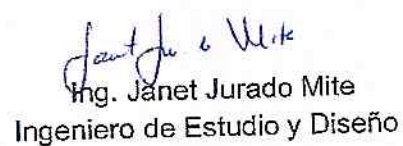 Ing. Janet Jurado Mite
Ingeniero de Estudio y Diseño